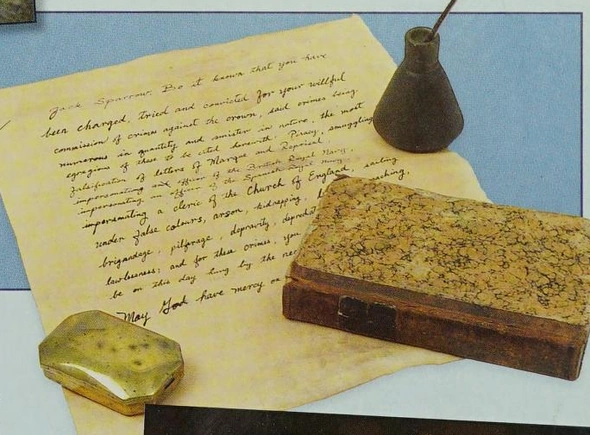 Jack Sparrow: Be it known that you have
been charged, tried and convicted for your willful
commission of crimes against the crown, said crimes being
numerous in quantity and sinister in nature, the most
egregious of these to be cited herewith: Piracy, smuggling
falsification of letters of Marque and Reprisal,
impersonating an officer of the British Royal Navy,
impersonating an officer of the Spanish Royal Navy,
impersonating a cleric of the Church of England, sailing
under false colours, arson, kidnapping,
brigandage, pilferage, depravity,
lawlessness; and for these crimes, you
be on this day hung by the
May God have mercy on